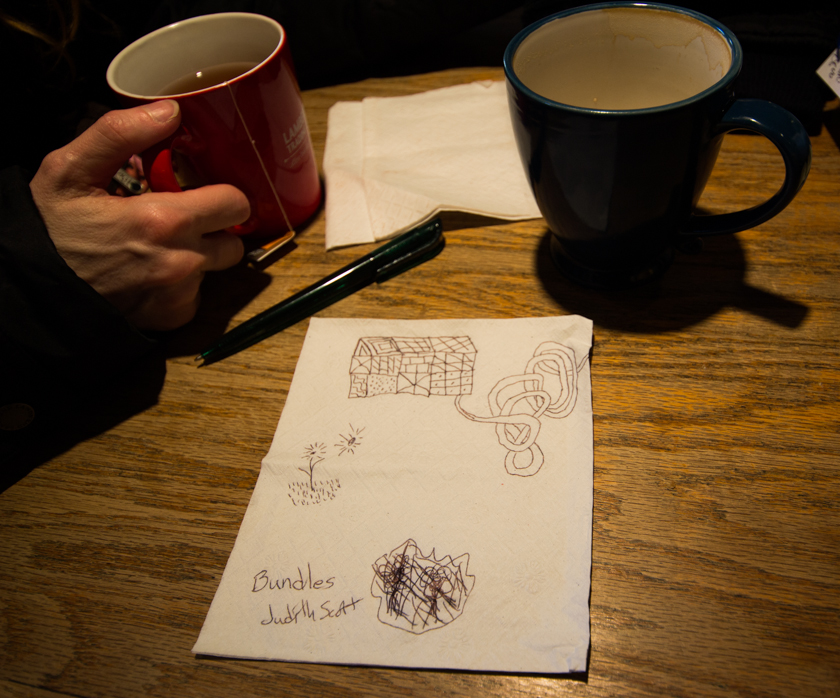 Bundles
Judith Scott